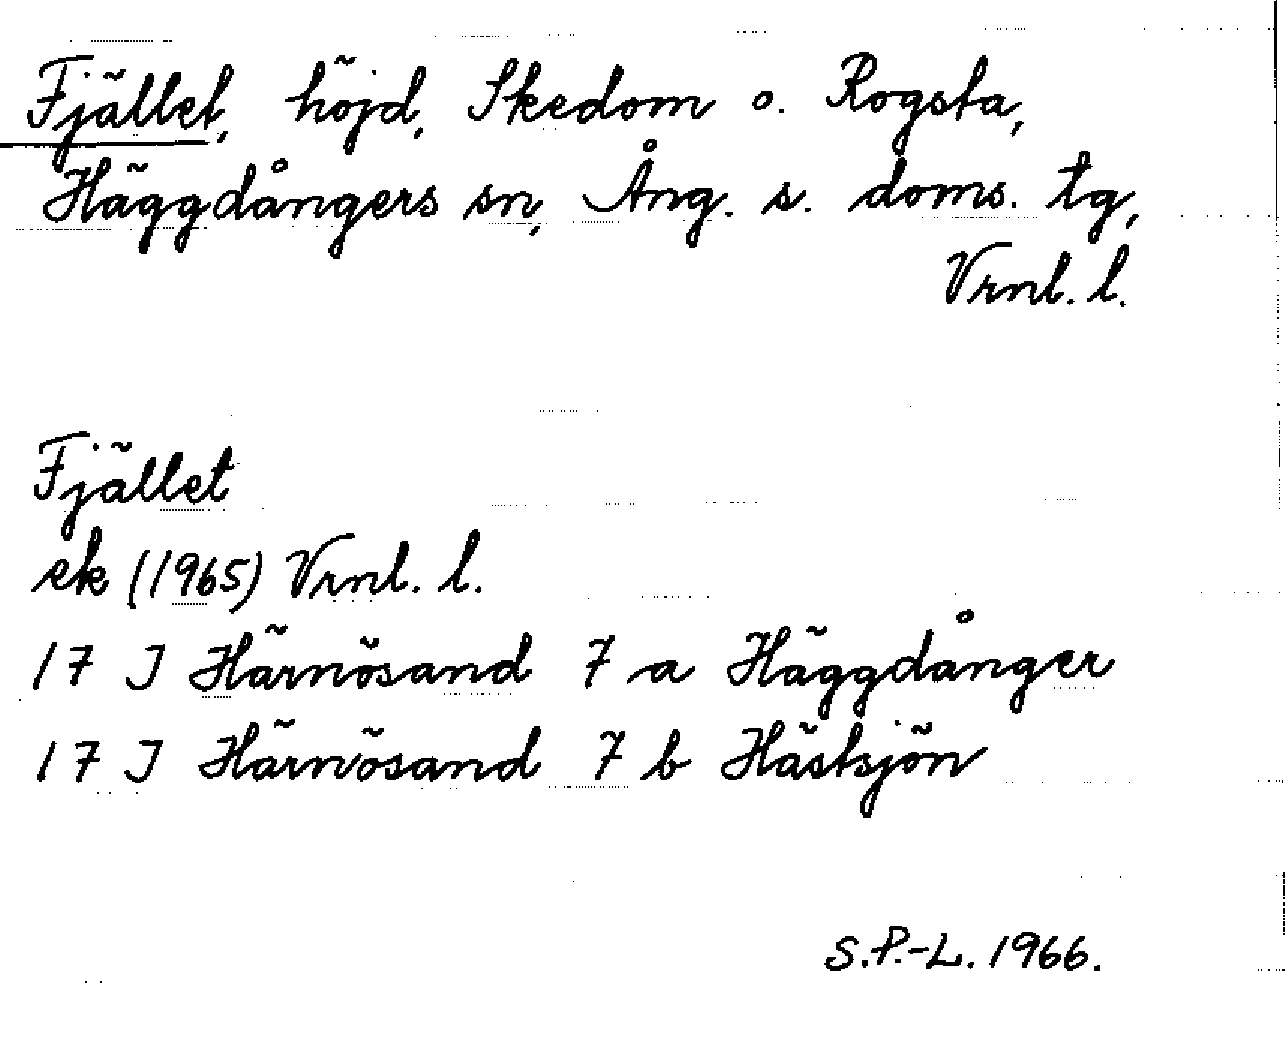 Fjället, höjd, Skedom o. Rogsta,
Häggdångers sn, Ång. s. doms. tg,
Vrnl. l.
Fjället
ek (1965) Vrnl. l.
17 J Härnösand 7 a Häggdånger
17 J Härnösand 7 b Hästsjön
S.P.-L. 1966.